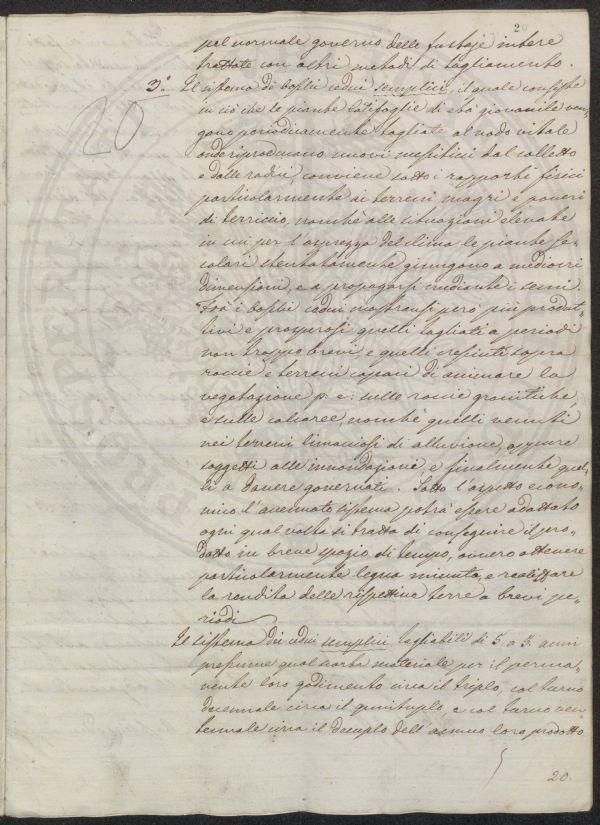 20
pel normale governo delle fustaje intere
trattate con altri metodi di tagliamento.
3.° Il sistema di boschi cedui semplici, il quale consiste
in ciò che le piante latifoglie di età giovanile ven-
gono periodicamente tagliate al nodo vitale
onde riproducano nuovi messiticci dal colletto
e dalle radici, conviene sotto i rapporti fisici
particolarmente ai terreni magri e poveri
di terriccio, nonchè alle situazioni elevate
in cui per l'asprezza del clima le piante se-
colari stentatamente giungono a mediocri
dimensioni, e a propagarsi mediante i semi.
Fra i boschi cedui mostransi però più produt-
tivi e prosperosi quelli tagliati a periodi
non troppo brevi, e quelli cresciuti sopra
roccie e terreni capaci di animare la
vegetazione p. e. sulle roccie granitiche
e sulle calcaree, nonchè quelli venuti
nei terreni limacciosi di alluvione, oppure
soggetti alle innondazioni, e finalmente quel-
li a dovere governati. Sotto l'aspetto econo-
mico l'accennato sistema potrà essere adottato
ogni qual volta si tratta di conseguire il pro-
dotto in breve spazio di tempo, ovvero ottenere
particolarmente legna minuta, e realizzare
la rendita delle rispettive terre a brevi pe-
riodi
Il sistema dei cedui semplici tagliabili di 5 a 7 anni
presume qual scorta materiale per il perma-
nente loro godimento circa il triplo, col turno
decennale circa il quintuplo, e col turno ven-
tennale circa il decuplo dell'annuo loro prodotto
20
20.